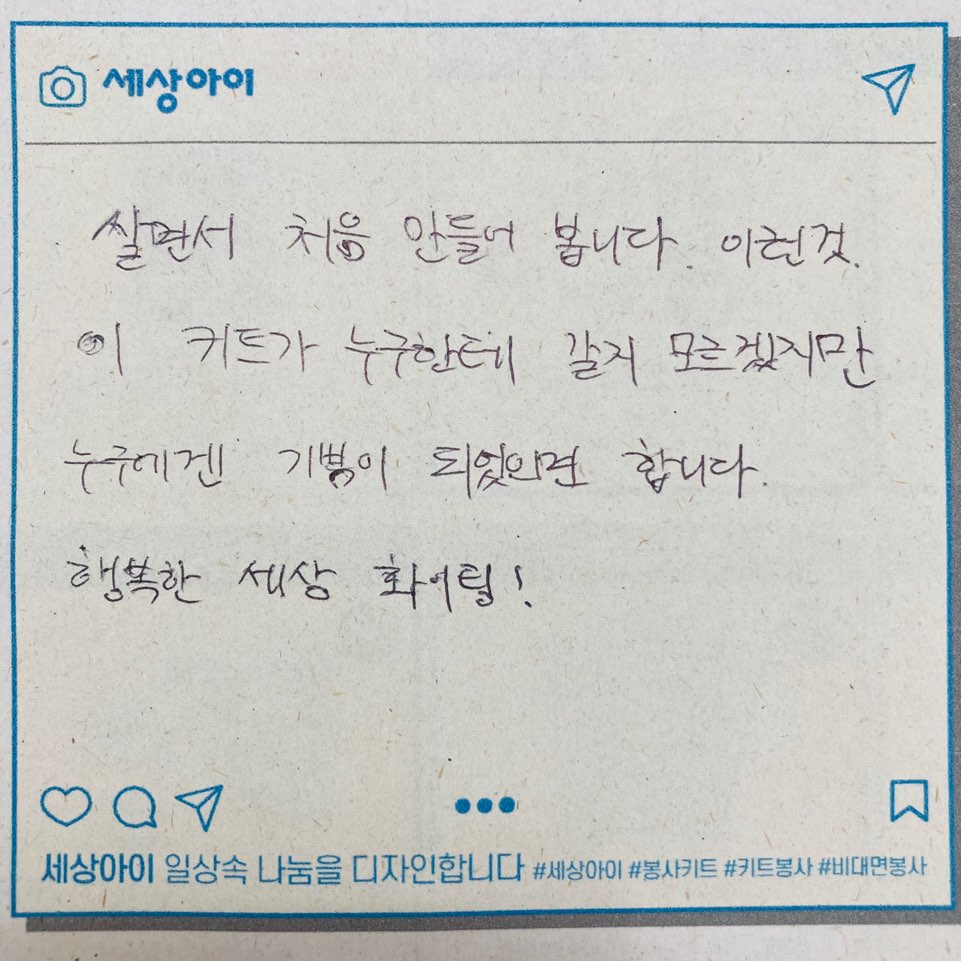 세상아이
살면서 처음 만들어 봅니다. 이런것.
이 키트가 누구한테 갈지 모르겠지만
누구에겐 기쁨이 되었으면 합니다.
행복한 세상 화이팅!
세상아이 일상속 나눔을 디자인합니다 #세상아이 #봉사키트 #키트봉사 #비대면봉사